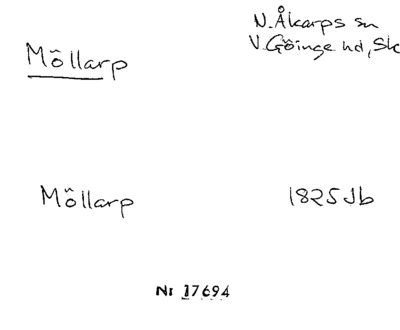 N. Åkarps sn
V. Göinge hd, Sk
Möllarp
Möllarp
1825 Jb
Nr 17694